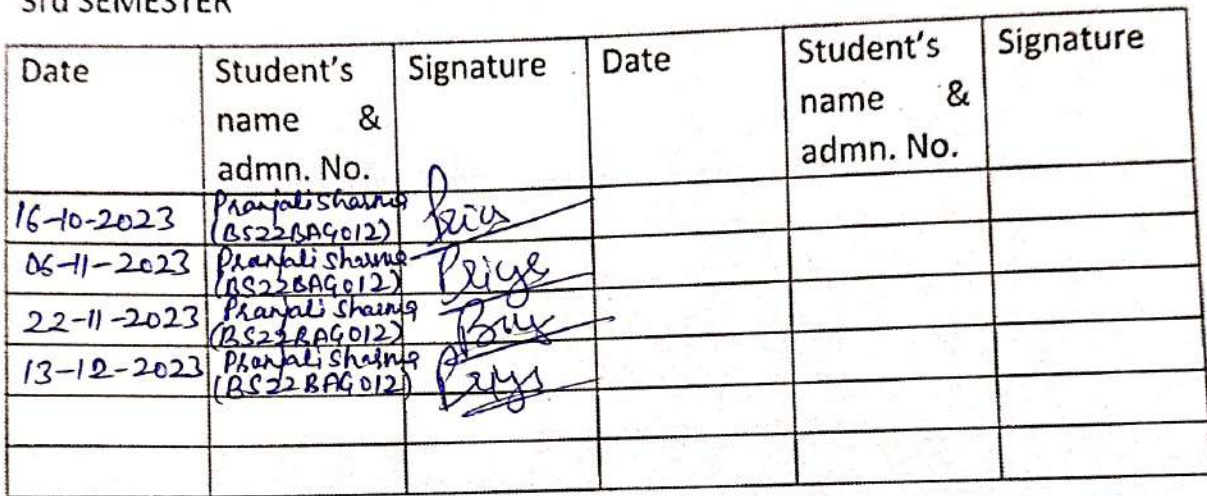 3rd SEMESTER
Date Student's name & admn. No. Signature Date Student's name & admn. No. Signature
16-10-2023 Pranjali Sharma (BS22BAG012)
06-11-2023 Pranjali Sharma (BS22BAG012) Priya
22-11-2023 Pranjali Sharma (BS22BAG012)
13-12-2023 Pranjali Sharma (BS22BAG012)